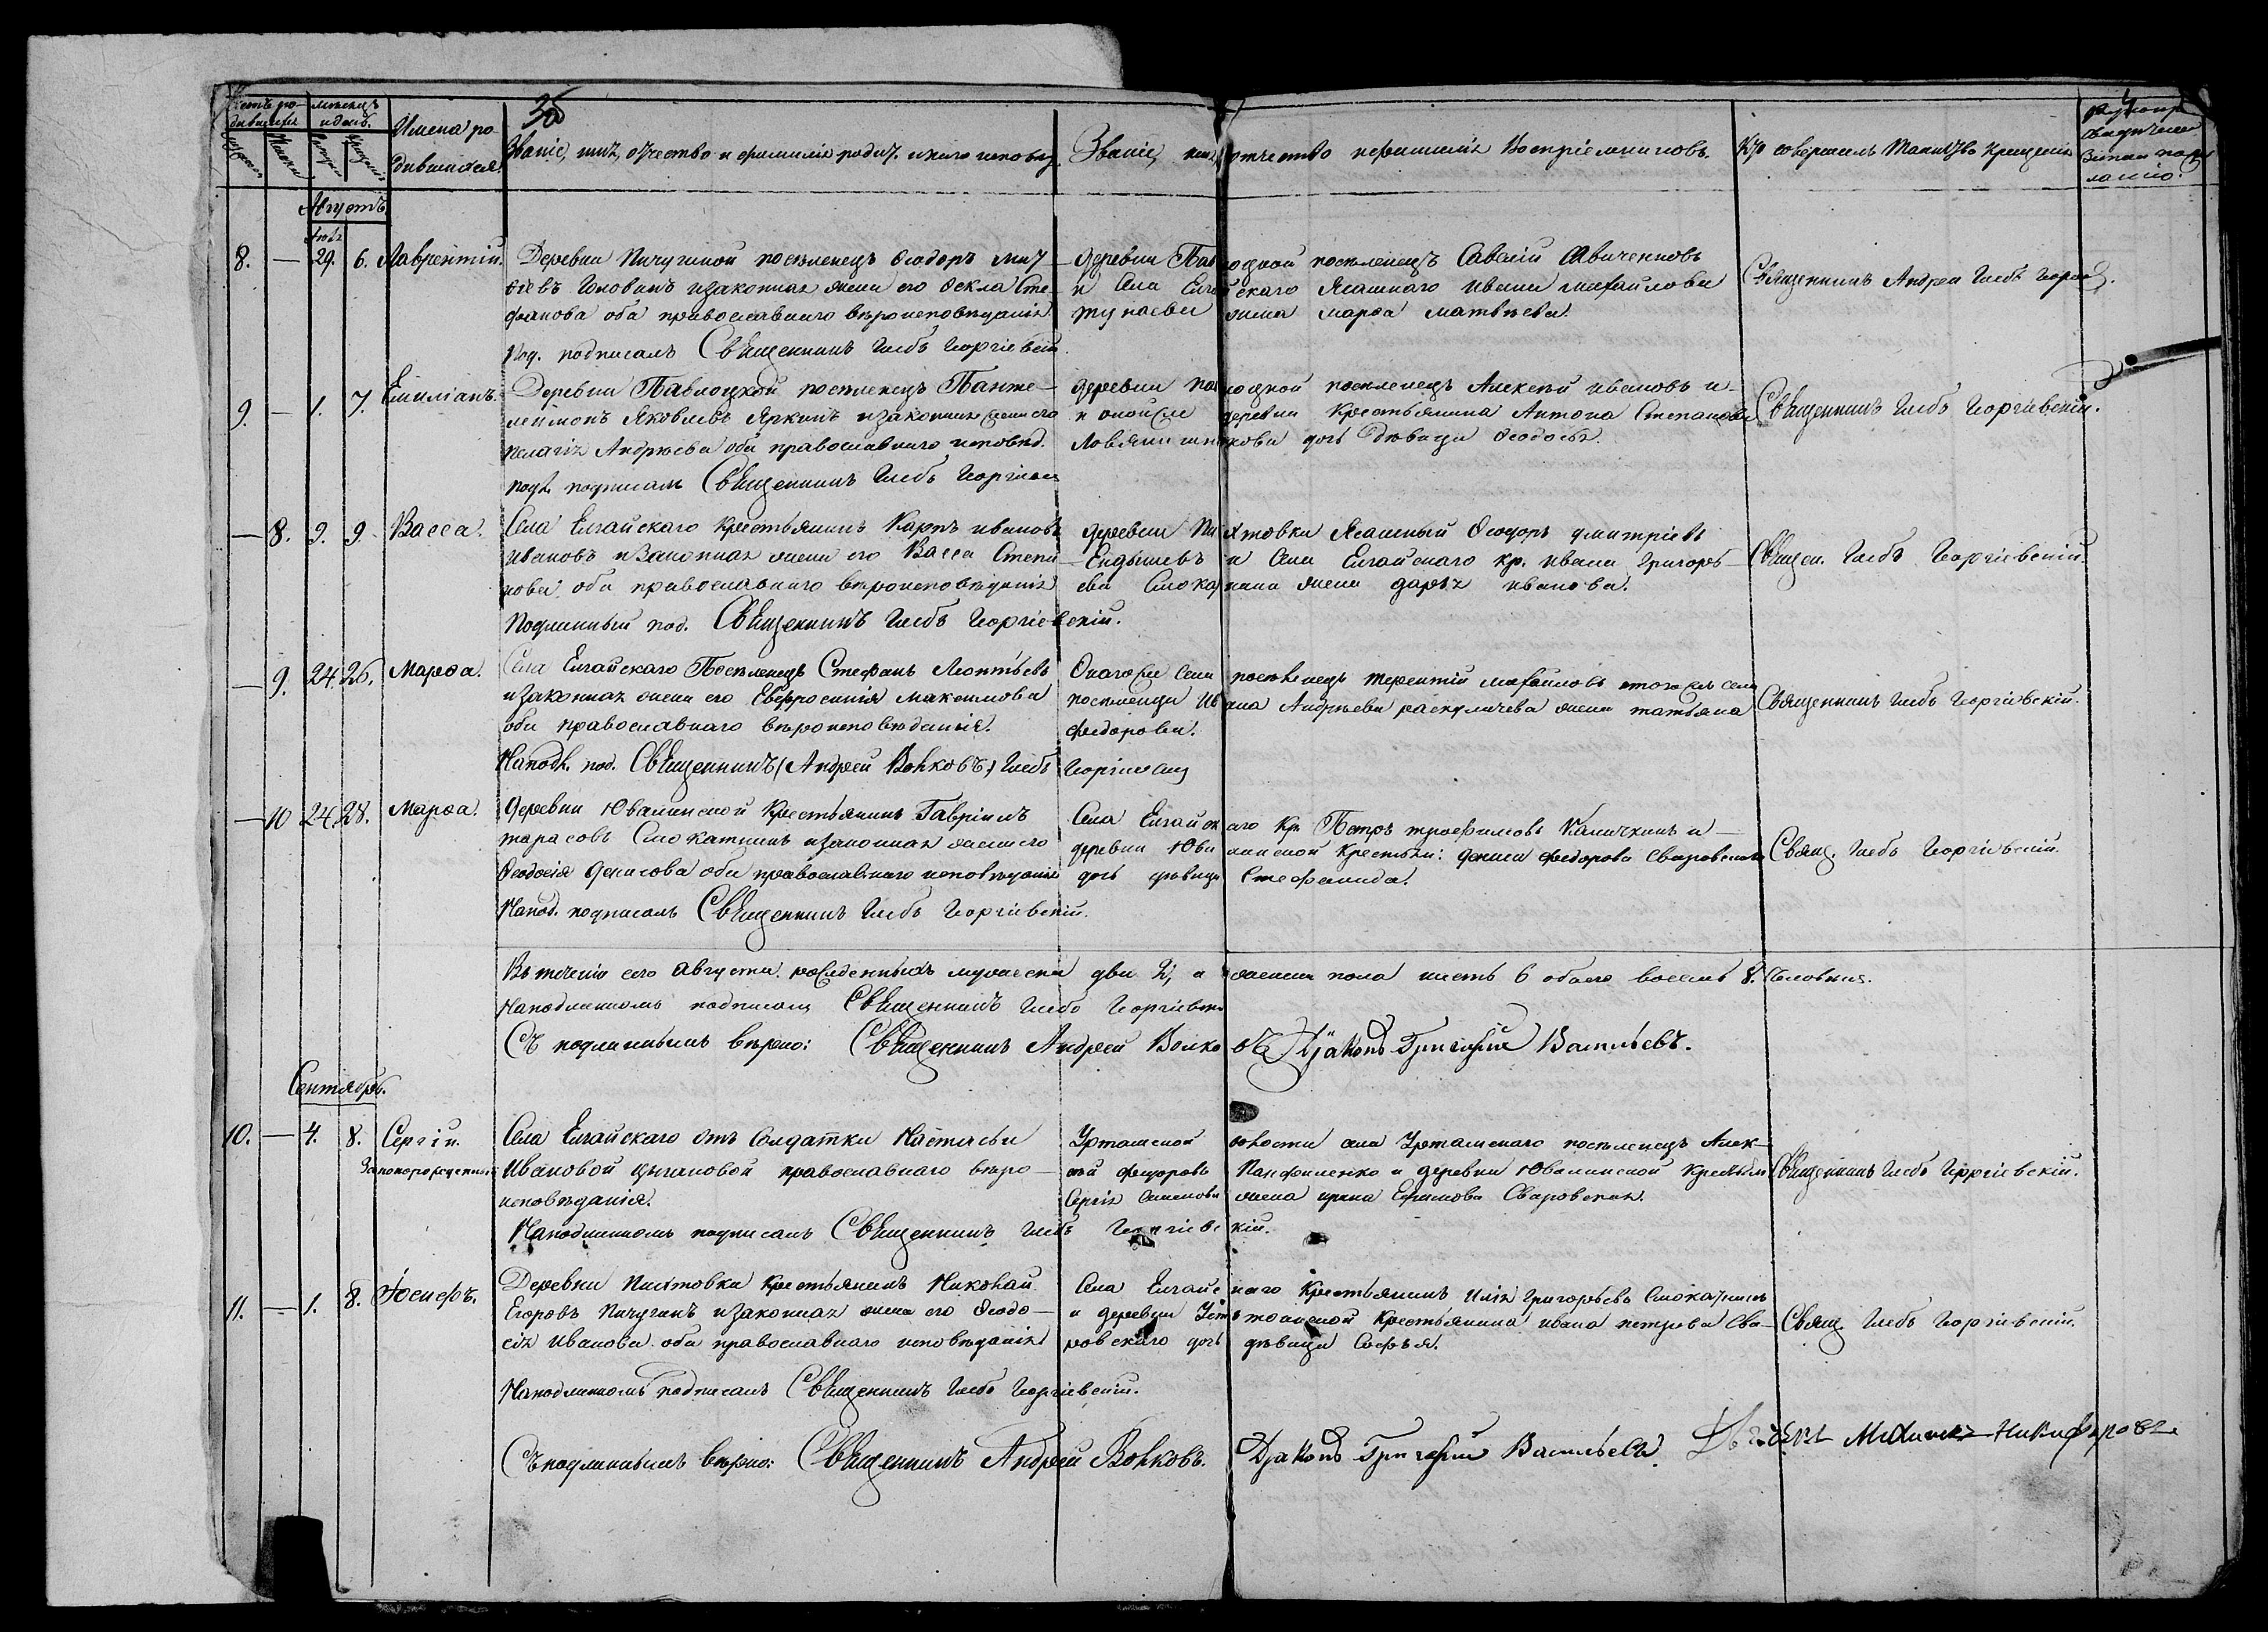 Счетъ ро-
дившихся
Мѣсяцъ
и день.
Имена ро-
дившихся.
Званіе, имя, отчество и фамилія родит. и какого исповѣд.
Званіе, имя, отчество и фамилія Воспріемниковъ.
Кто совершалъ Таинство Крещенія
Августъ
8. — 29. 6. Лаврентій.
Деревни Пичугиной поселенецъ Ѳеодоръ
Головинъ и законная жена его Ѳекла Сте-
фанова оба православнаго вѣроисповѣданія
Под. подписалъ Священникъ Глебъ Георгіевскій
поселенецъ Савелій
и Села Елгайскаго Ясашнаго Ивана Михайлова
жена Марѳа Матвѣева.
Священникъ Андрей Глебъ Георгіев.
9. — 1. 7. Емиліанъ.
Деревни Павлоцкой поселенецъ Панте-
леймонъ Яковлевъ Яркинъ и законная жена его
Пелагія Андреева оба православнаго исповѣд.
Подл. подписалъ Священникъ Глебъ Георгіевск
деревни Павлоцкой поселенецъ Алексѣй Ивановъ и
деревни Крестьянина Антона Степанова
дочь дѣвица Ѳеодосья.
Священникъ Глебъ Георгіевскій.
— 8. 9. 9. Васса.
Села Елгайскаго Крестьянинъ Карпъ Ивановъ
Ивановъ и Законная жена его Васса Степа
нова, оба православнаго вѣроисповѣданія
Подлинный под. Священникъ Глебъ Георгіевскій.
деревни Пихтовки Ясашный Ѳеодоръ Дмитріевъ
Ендышевъ и Села Елгайскаго кр. Ивана Григорь-
ева Слокатина жена Дарья Иванова.
Священ. Глебъ Георгіевскій.
— 9. 24. 26. Марѳа.
Села Елгайскаго Поселенецъ Стефанъ Леонтьевъ
и законная жена его Евфросинія Максимова
оба православнаго вѣроисповѣданія.
На подл. под. Священникъ (Андрей Волковъ) Глебъ Георгіевскій
Онагоже Села поселенецъ Терентій Михайловъ тогоже села
поселенца Ивана Андреева жена Татьяна
Федорова.
Священникъ Глебъ Георгіевскій.
— 10 24. 28. Марѳа.
Деревни Ювалинской Крестьянинъ Гавріилъ
Тарасовъ Слокатинъ и законная жена его
Ѳеодосія Денисова оба православнаго исповѣданія
На под. подписалъ Священникъ Глебъ Георгіевскій.
Села Елгайскаго Кр. Петръ Трофимовъ Каличкинъ и
деревни Ювалинской Крестьян: Дениса Федорова Сваровскаго
дочь дѣвица Стефанида.
Свящ. Глебъ Георгіевскій.
Въ теченіи сего Августа рожденныхъ мужеска два 2, а женска пола шесть 6 обоего восемь 8. Человѣкъ.
На подлинномъ подписалъ Священникъ Глебъ Георгіевскій
Съ подлиннымъ вѣрно: Священникъ Андрей Волковъ Діаконъ Григорій Васильевъ.
Сентябрь.
10. — 4. 8. Сергій.
Законорожденный
Села Елгайскаго Отъ Солдатки Настасьи
Ивановой Цыгановой православнаго вѣро-
исповѣданія.
На подлинномъ подписалъ Священникъ Глебъ Георгіевскій.
Уртамской волости села Уртамскаго поселенецъ Алек-
сѣй Федоровъ Панфиленко и деревни Ювалинской Крестьян
Сергія Семенова жена Ирина Ефимова Сваровская.
Священникъ Глебъ Георгіевскій.
11. — 1. 8. Іосифъ.
Деревни Пихтовки Крестьянинъ Николай
Егоровъ Пичугинъ и законная жена его Ѳеодо-
сія Иванова оба православнаго исповѣданія
На подлинномъ подписалъ Священникъ Глебъ Георгіевскій.
Села Елгайскаго Крестьянинъ Илія Григорьевъ Слокатинъ
и деревни Крестьянина Ивана Петрова Сва-
ровскаго дочь дѣвица Софья.
Свящ. Глебъ Георгіевскій.
Съ подлиннымъ вѣрно: Священникъ Андрей Волковъ. Діаконъ Григорій Васильевъ. Никифоровъ